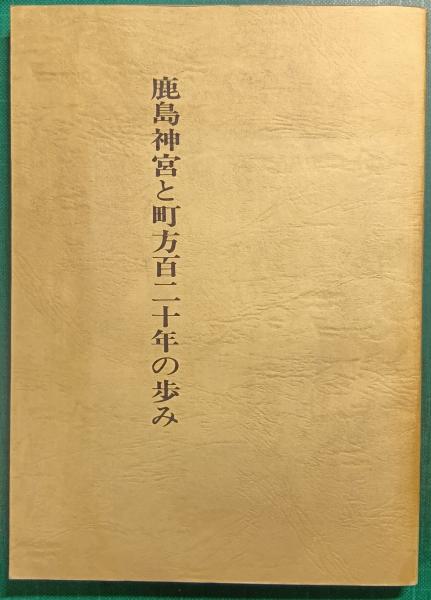 鹿島神宮と町方百二十年の歩み